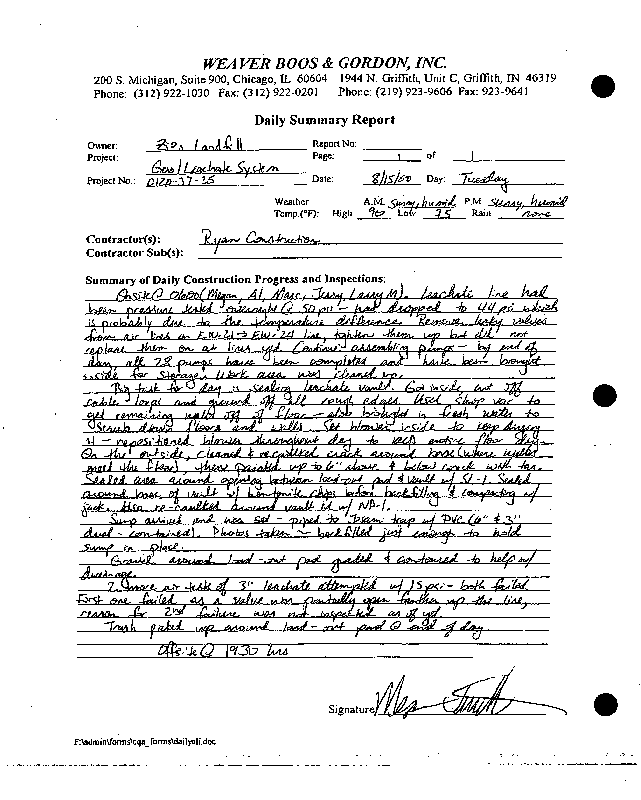 WEAVER BOOS & GORDON, INC.
200 S. Michigan, Suite 900, Chicago, IL 60604 1944 N. Griffith, Unit C, Griffith, IN 46319
Phone: (312) 922-1030 Fax: (312) 922-0201 Phone: (219) 923-9606 Fax: 923-9641
Daily Summary Report
Owner: Landfill Report No:
Project: Gas/Leachate System Page: 1 of 1
Project No.: 0120-37-25 Date: 8/15/00 Day: Tuesday
Weather A.M. Sunny, humid P.M. Sunny, humid
Temp.(°F): High 90 Low 75 Rain none
Contractor(s): Ryan Construction
Contractor Sub(s):
Summary of Daily Construction Progress and Inspections:
Onsite @ (Megan, Al, Marc, Jerry, Larry M). Leachate line had
been pressure tested overnight @ 50 psi - had dropped to 44 psi which
is probably due to the temperature difference. Remove leaky valves
from air lines on line, tighten them up but did not
replace them on air lines yet. Continue assembling pumps - by end of
day, all 28 pumps have been completed and have been brought
inside for storage. Work area was cleaned up.
Big task for day is sealing leachate vault. Go inside, cut off
cable and ground off all rough edges. Used shop vac to
get remaining water off of floor - also brought in fresh water to
scrub down floors and walls. Set blower inside to keep drying
it - repositioned blower throughout day to keep entire floor dry.
On the outside, cleaned & recaulked crack around base (where walls
meet the floor), then painted up to 6" above & below crack with tar.
Sealed area around opening between load-out pad & vault w/ SL-1. Sealed
around base of vault w/ bentonite chips before backfilling & compacting w/
jack. Also re-caulked around vault lid w/ NP-1.
Sump arrived and was set - piped to trap w/ PVC (6" & 3"
dual-contained). Photos taken - backfilled just enough to hold
sump in place.
Gravel around load-out pad graded & contoured to help w/
drainage.
2 more air tests of 3" leachate attempted w/ 15 psi - both failed.
First one failed as a valve was partially open further up the line,
reason for 2nd failure was not inspected as of yet.
Trash picked up around load-out pad @ end of day
Offsite @ 1930 hrs
Signature
F:\admin\forms\cqa_forms\dailyoli.doc